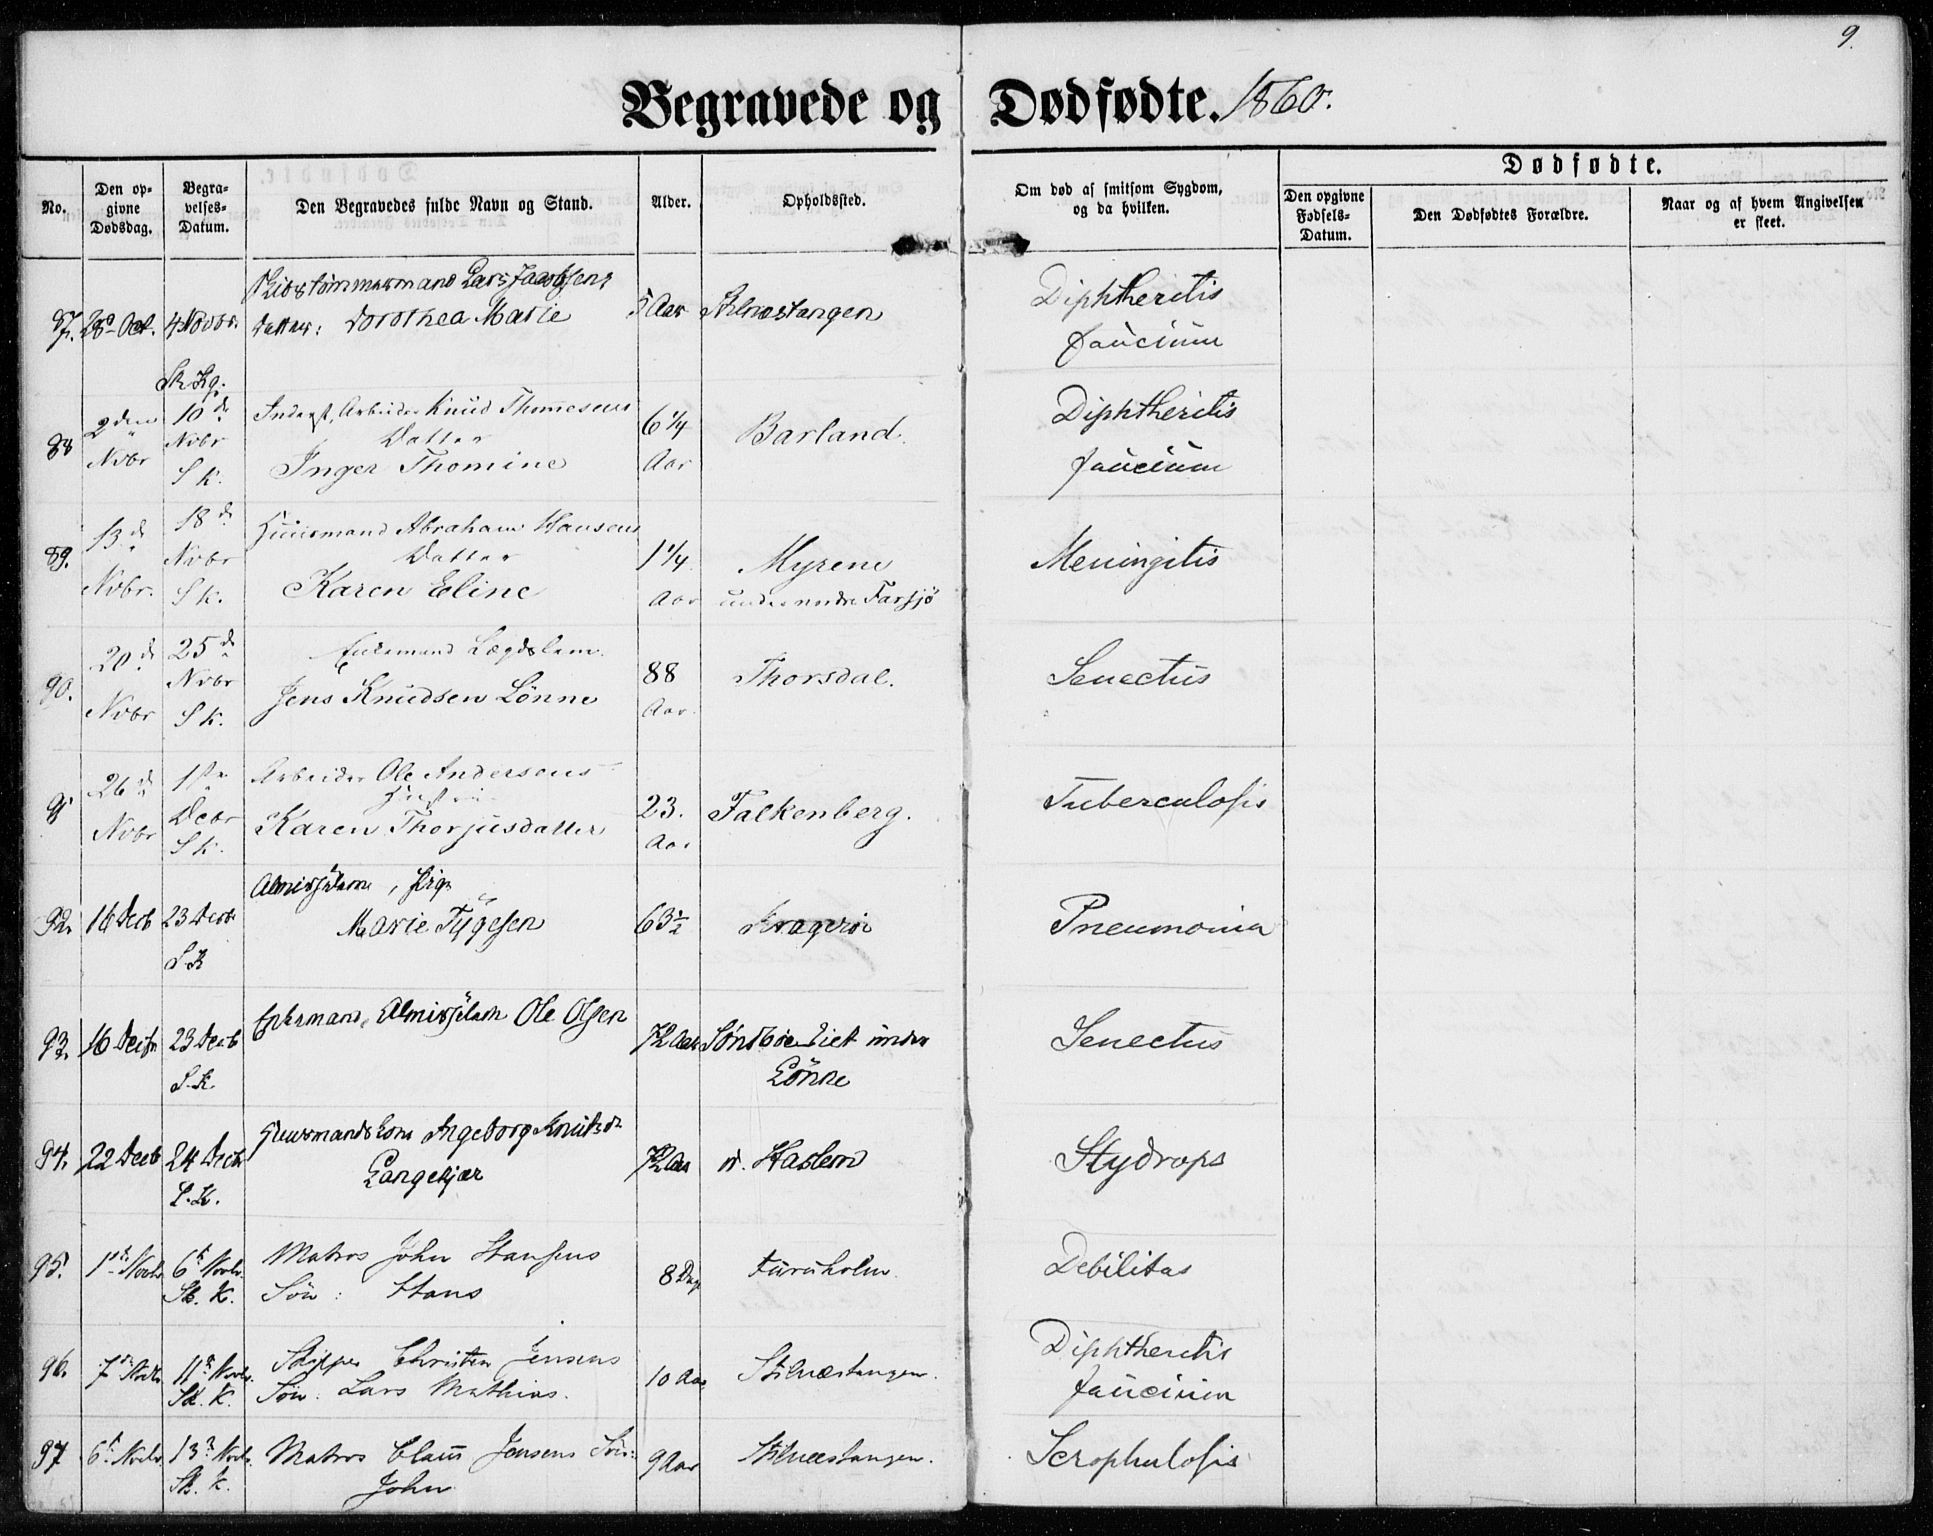 9.
Begravede og Dødfødte. 1860.
No.
Den op-
givne
Dødsdag.
Begra-
velses-
Datum.
Den Begravedes fulde Navn og Stand.
Alder.
Opholdssted.
Om død af smitsom Sygdom,
og da hvilken.
Dødfødte.
Den opgivne
Fødsels-
Datum.
Den Dødfødtes Forældre.
Naar og af hvem Angivelsen
er skeet.
87. 28de Oct. 4 Novbr.
Sk. Kg.
Lars Jacobsens
Datter: Dorothea Marie
5 Aar
Stilnæstangen
Diphtheritis
faucium
88
2den
Nvbr
10de
Nvbr
S K.
Inderst, Arbeider Knud Thomesens
Datter
Inger Thomine
6 1/4
Aar
Barland.
Diphtheritis
faucium
89.
13de
Nvbr.
18de
Nvbr
S K.
Huusmand Abraham Hansens
Datter
Karen Eline
1 1/4
Aar
Myrene
under nedre Farsjø
Meningitis
90.
20de
Nvbr
25de
Nvbr
S K.
Enkemand Lægdslem
Jens Knudsen Lönne
88
Aar.
Thorsdal.
Senectus
91
26de
Nvbr
1ste
Decbr
S K.
Arbeider Ole Andersens
Hustru
Karen Thorjusdatter
23.
Aar
Falkenberg.
Tuberculosis
92. 16 Decb 23 Decbr
S. K
Almisselem, Pige
Marie Tygesen
63½
Kragerøe
Pneumonia
93. 16 Decbr 23 Decb
S. K.
Enkemand, Almisselem Ole Olsen
72 Aar
Söndbøe Eiet under
Lönne
Senectus
94. 22 Decb 24 Decb
S. K.
Huusmandskone Ingeborg Knutsdr
Langekjær
72 Aar
Haslem
Hydrops
95. 1ste Novbr. 6te Novbr.
Sk. K.
Matros John Hansens
Sön: Hans
8 Dage
Furuholm.
Debilitas
96. 7de Novbr. 11te Novbr.
Sk. K.
Skipper Christen Jensens
Sön: Lars Mathias.
10 Aar
Stilnæstangen.
Diphtheritis
faucium
97 6te Novbr. 13de Novbr.
Sk. K.
Matros Claus Jensens Sön:
John
9 Aar
Stilnæstangen.
Scrophulosis